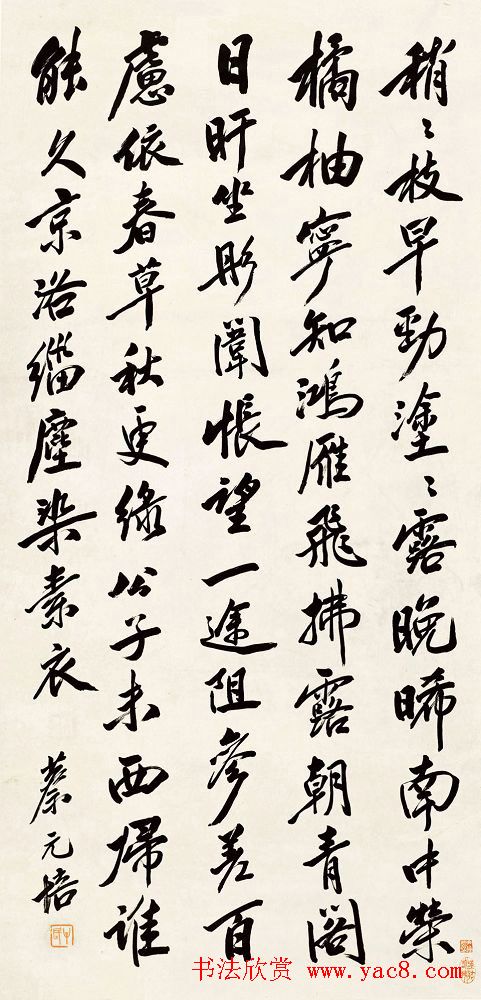 稍〻枝早勁塗〻露晚晞南中榮
橘柚寧知鴻雁飛拂露朝青閣
日旰坐彤闈悵望一途阻參差百
慮依春草秋更綠公子未西歸誰
能久京洛緇塵染素衣
蔡元培
书法欣赏 www.yac8.com